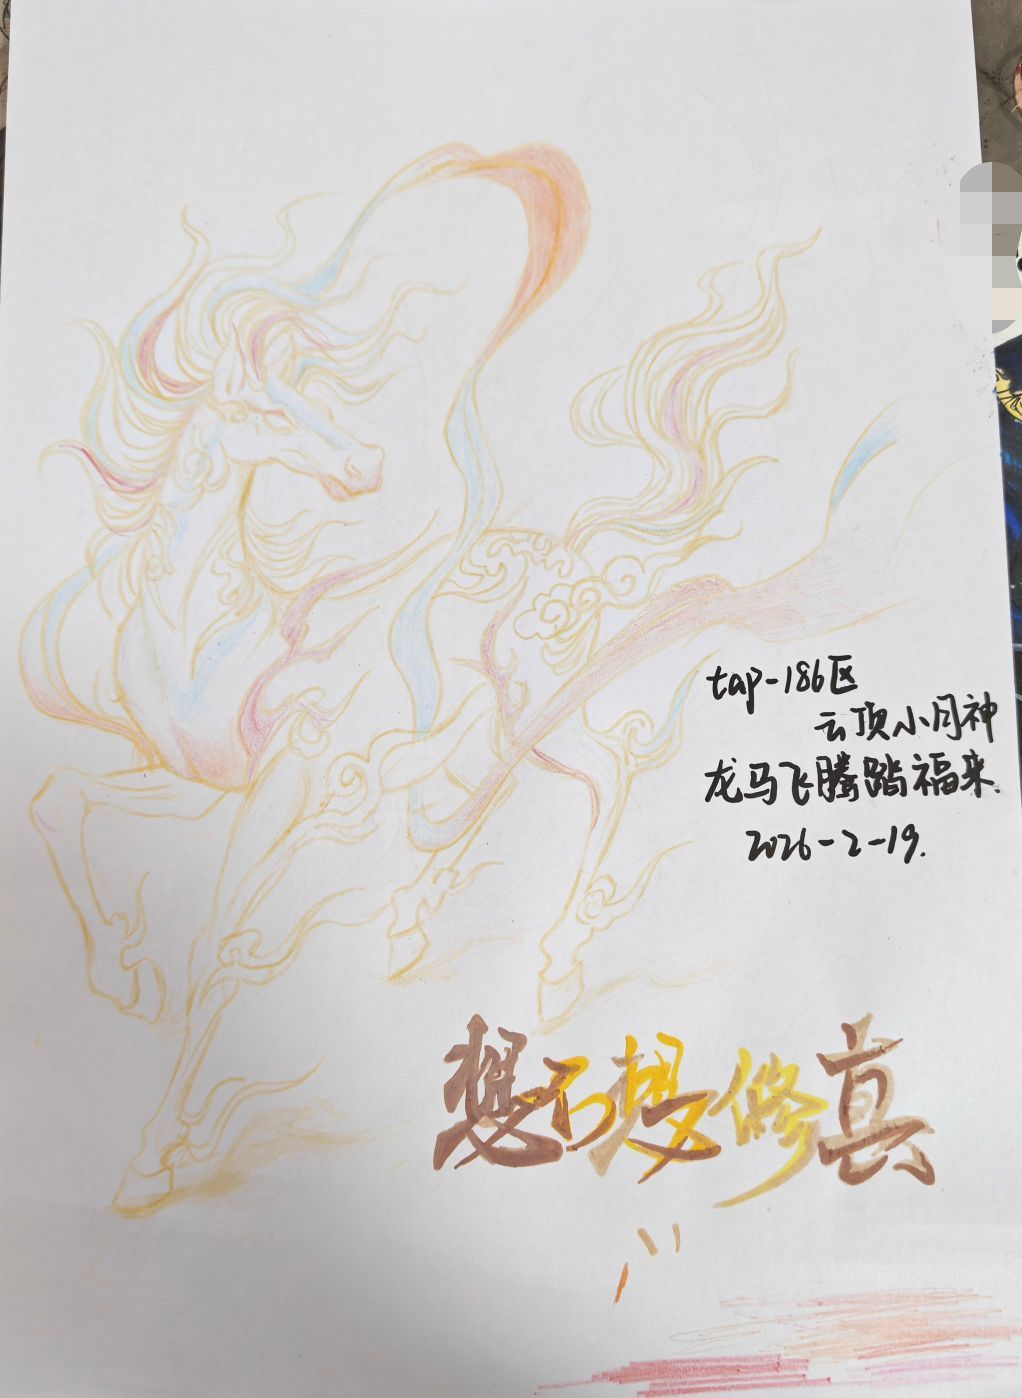 tap-186区
云顶小月神
龙马飞腾踏福来.
2026-2-19.
想不想修真